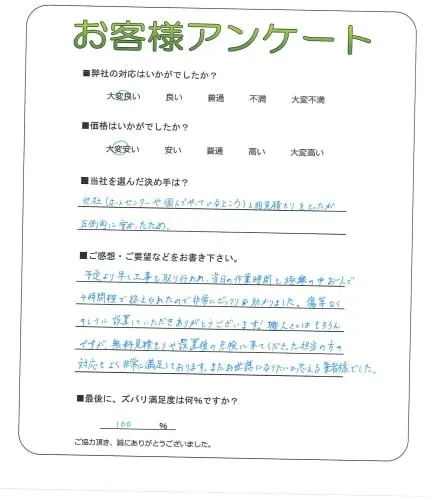 お客様アンケート
■弊社の対応はいかがでしたか?
大変良い 良い 普通 不満 大変不満
■価格はいかがでしたか?
大変安い 安い 普通 高い 大変高い
■当社を選んだ決め手は?
他社(ホームセンターや個人でやっているところ)と相見積もりをとったが
圧倒的に安かったため。
■ご感想・ご要望などをお書き下さい。
予定より早く工事も取り行われ、当日の作業時間も極寒の中お一人で
4時間程で終えられたので非常にビックリ&助かりました。傷等なく
キレイに設置していただきありがとうございます!職人さんはもちろん
ですが、無料見積もりや設置後の点検に来てくださった担当の方の
対応もよく非常に満足しております。またお世話になりたいと思える業者様でした。
■最後に、ズバリ満足度は何%ですか?
100 %
ご協力頂き、誠にありがとうございました。